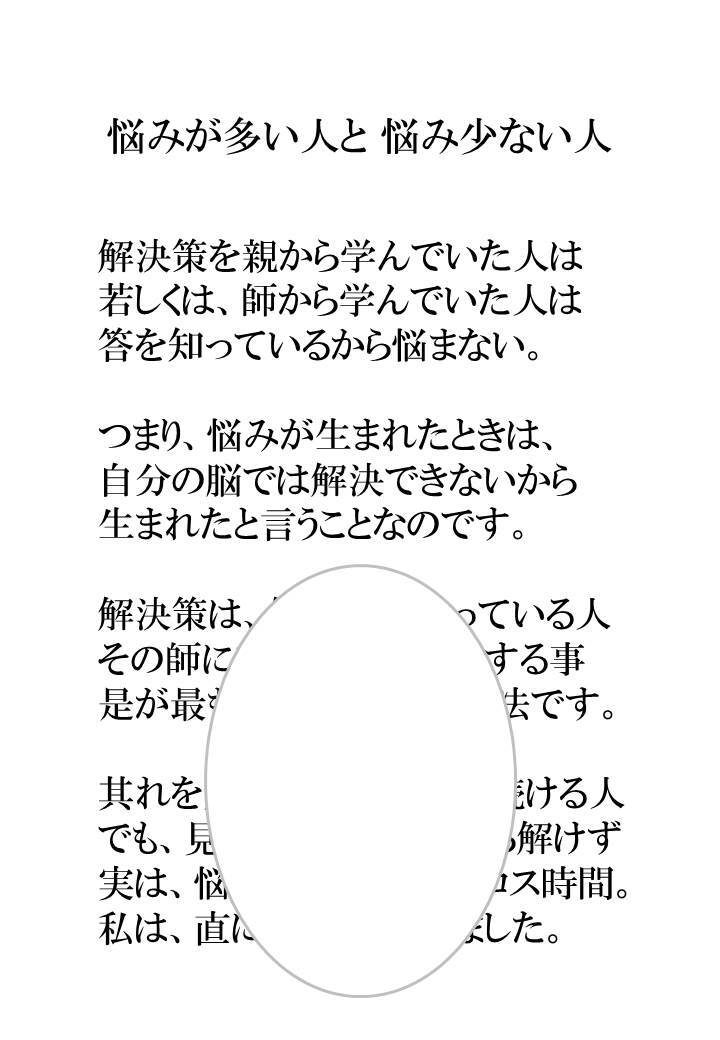 悩みが多い人と 悩み少ない人
解決策を親から学んでいた人は
若しくは、師から学んでいた人は
答を知っているから悩まない。
つまり、悩みが生まれたときは、
自分の脳では解決できないから
生まれたと言うことなのです。
解決策は、 っている人
その師に する事
是が最 法です。
其れを ける人
でも、見 解けず
実は、悩 ロス時間。
私は、直に ました。